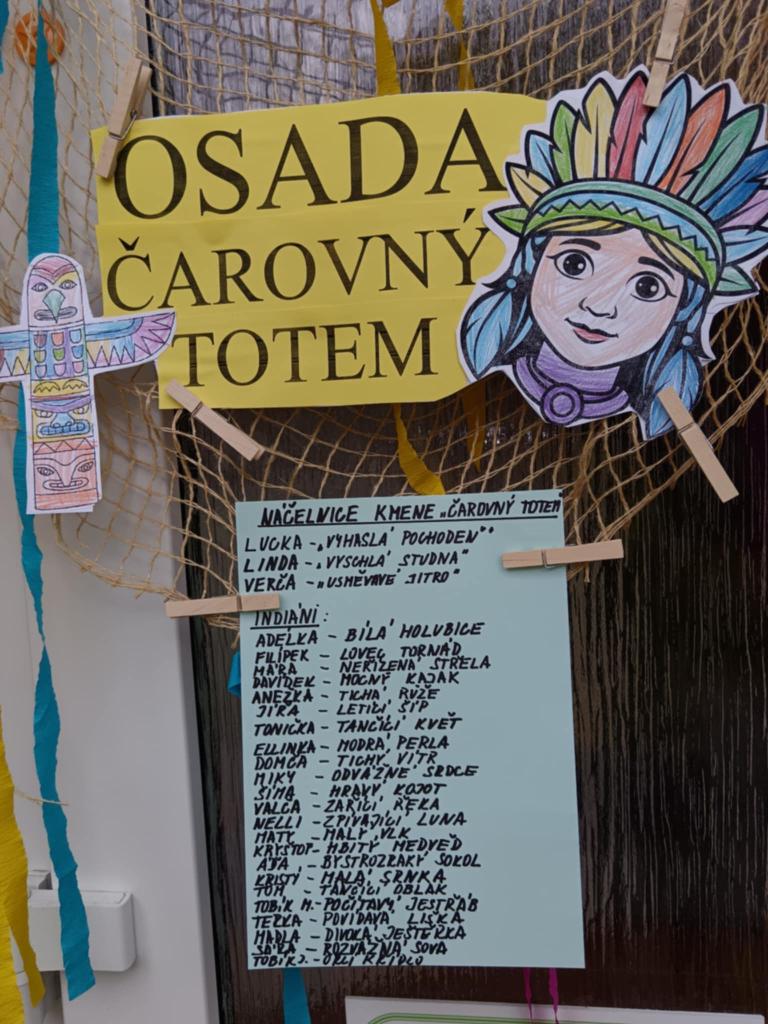 OSADA
ČAROVNÝ
TOTEM
NÁČELNICE KMENE „ČAROVNÝ TOTEM
LUCKA - „VYHASLÁ POCHODEŇ"
LINDA - „VYSCHLÁ STUDNA"
VERČA - „USMĚVAVÉ JITRO"
INDIÁNI:
ADÉLKA - BÍLÁ HOLUBICE
FILÍPEK - LOVEC TORNÁD
MÁRA - NEŘÍZENÁ STŘELA
DAVÍDEK - MOCNÝ KAJAK
ANEŽKA - TICHÁ RŮŽE
JÍŘA - LETÍCÍ ŠÍP
TONIČKA - TANČÍCÍ KVĚT
ELLINKA - MODRÁ PERLA
DOMČA - TICHÝ VÍTR
MIKY - ODVÁŽNÉ SRDCE
ŠÍMA - HRAVÝ KOJOT
VALČA - ZÁŘÍCÍ ŘEKA
NELLI - ZPÍVAJÍCÍ LUNA
MATY - MALÝ VLK
KRYŠTOF - HBITÝ MEDVĚD
ÁĎA - BYSTROZRAKÝ SOKOL
KRISTÝ - MALÁ SRNKA
TOM - TANČÍCÍ OBLAK
TOBÍK M. - POČÍTAVÝ JESTŘÁB
TERKA - POVÍDAVÁ LIŠKA
MADLA - DIVOKÁ JEŠTĚRKA
SÁRA - ROZVÁŽNÁ SOVA
TOBÍK J. - ORLÍ KŘÍDLO